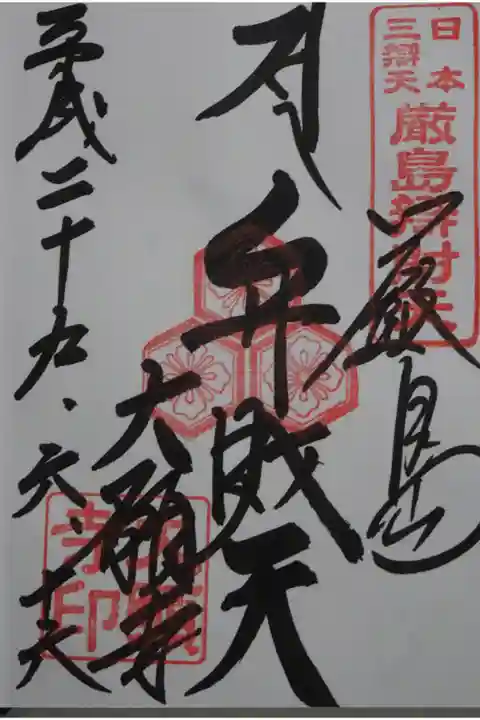 日本
三辯天
厳島辯財天
厳島
弁財天
大願寺
平成二十九、六、十六
大願
寺印